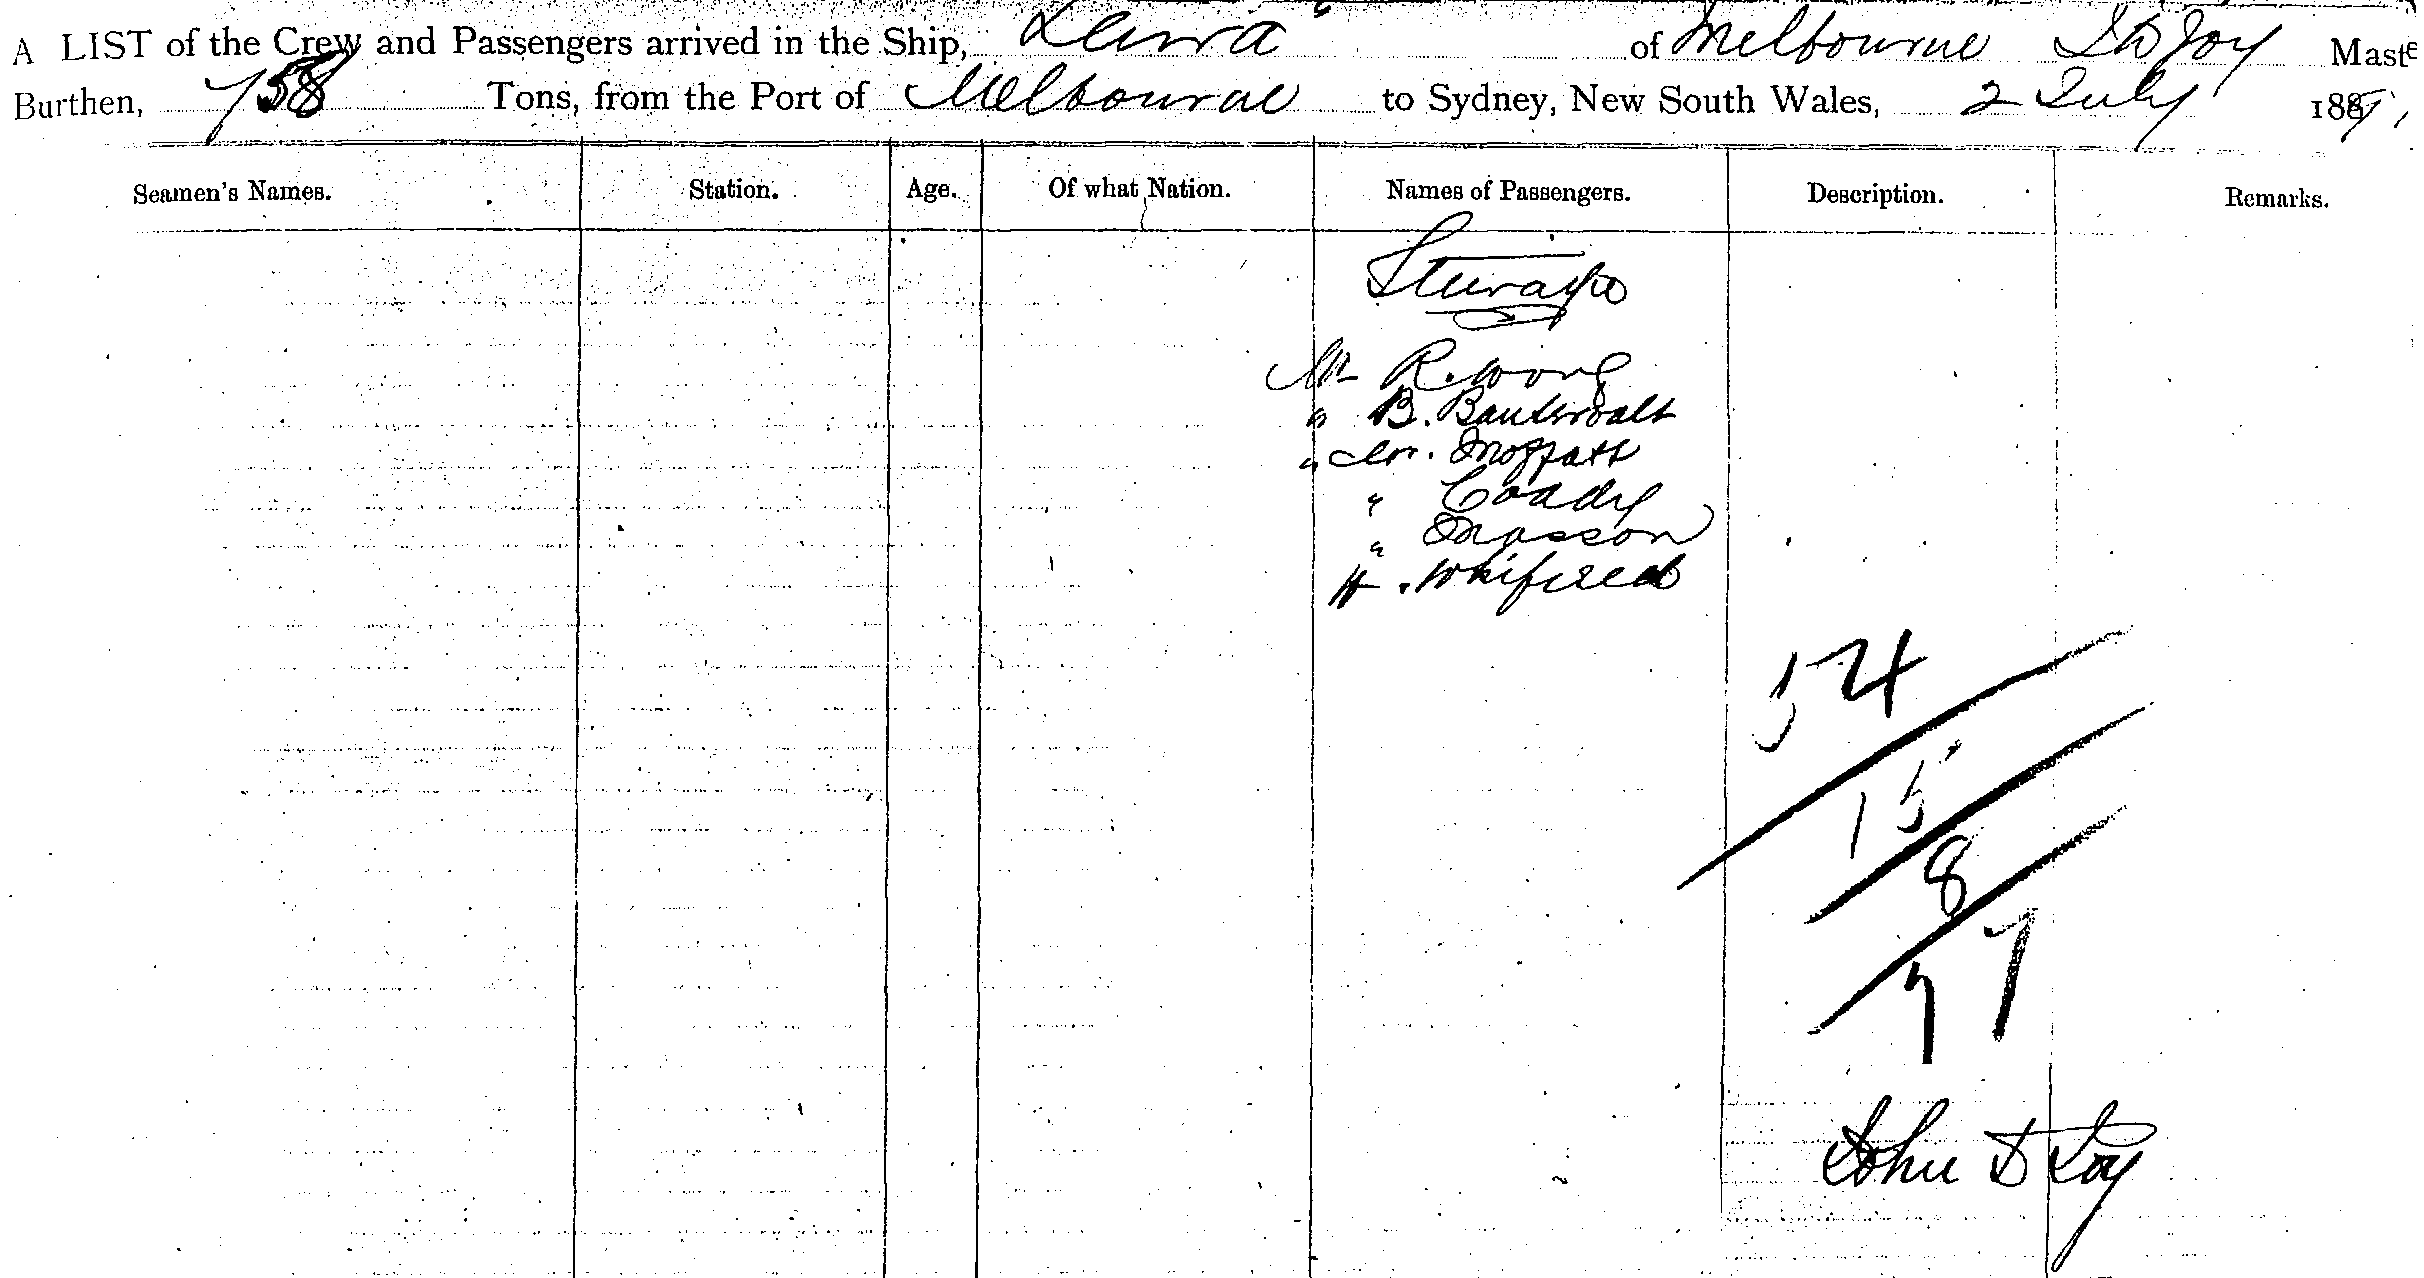 A LIST of the Crew and Passengers arrived in the Ship, of Melbourne Joy Maste
Burthen, 758 Tons, from the Port of Melbourne to Sydney, New South Wales, 2 July 188
Seamen's Names. Station. Age. Of what Nation. Names of Passengers. Description. Remarks.
Steerage
Mr R. Wong
" B.
" Moffatt
" Coady
" Masson
54
15
8
77
John D Joy